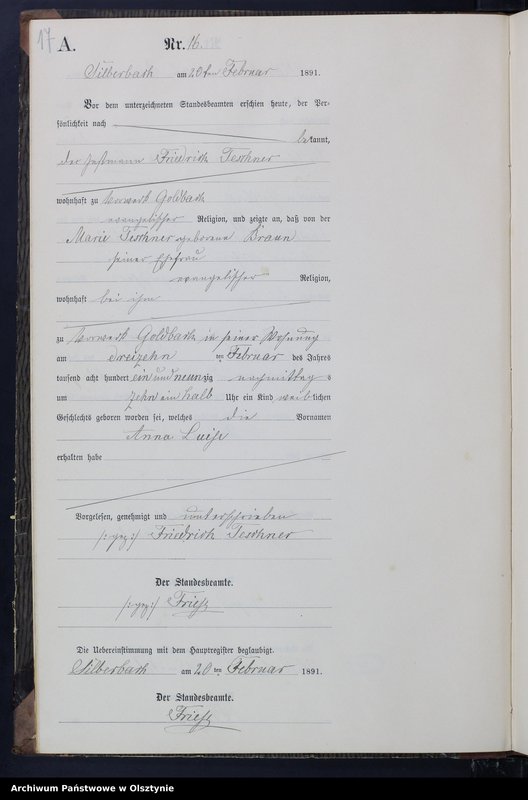 17
A.
Nr. 16.
Silberbach am 20ten Februar 1891.
Vor dem unterzeichneten Standesbeamten erschien heute, der Per-
sönlichkeit nach
bekannt,
der Instmann Friedrich Teschner
wohnhaft zu Vorwerk Goldbach
evangelischer Religion, und zeigte an, daß von der
Marie Teschner geborene Braun
seiner Ehefrau
evangelischer Religion,
wohnhaft bei ihm
zu Vorwerk Goldbach in seiner Wohnung
am dreizehn ten Februar des Jahres
tausend acht hundert ein und neunzig nachmittag s
um zehn ein halb Uhr ein Kind weiblichen
Geschlechts geboren worden sei, welches die Vornamen
Anna Luise
erhalten habe
Vorgelesen, genehmigt und unterschrieben
/:gez:/ Friedrich Teschner
Der Standesbeamte.
/:gez:/
Die Uebereinstimmung mit dem Hauptregister beglaubigt.
Silberbach am 20 ten Februar 1891.
Der Standesbeamte.
Archiwum Państwowe w Olsztynie